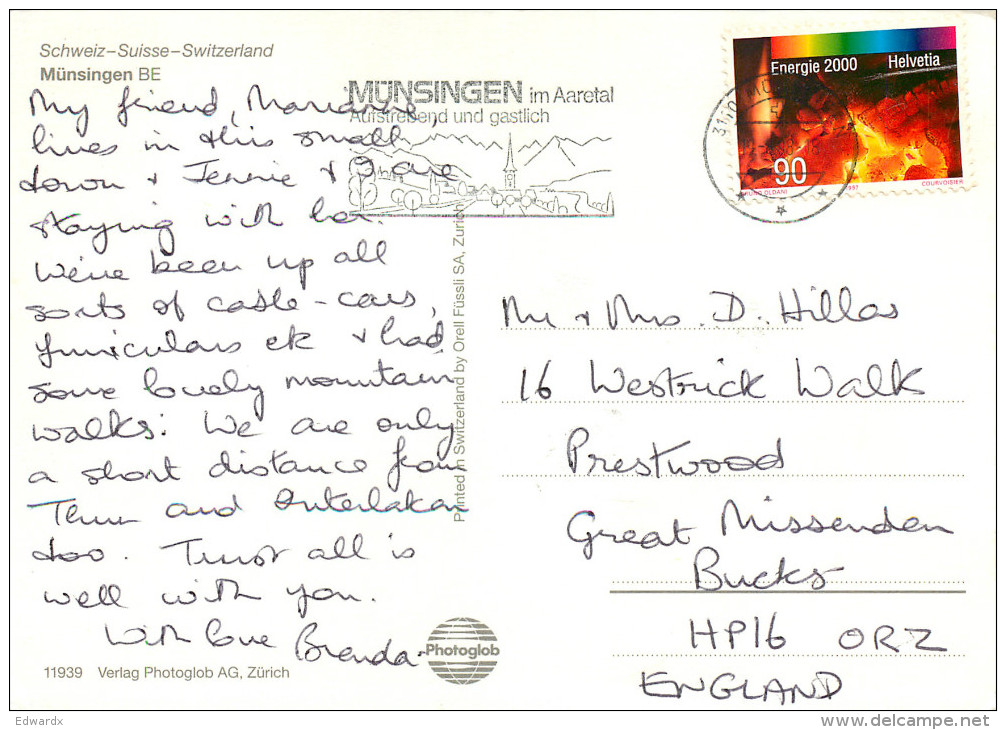 Schweiz–Suisse–Switzerland
Münsingen BE
My friend,
lives in this small
town & Jennie & I are
staying with her.
We've been up all
sorts of cable-cars,
funiculars etc & had
some lovely mountain
walks. We are only
a short distance from
Thun and Interlaken
too. Trust all is
well with you.
With love Brenda.
11939 Verlag Photoglob AG, Zürich
MÜNSINGEN im Aaretal
Aufstrebend und gastlich
Printed in Switzerland by Orell Füssli SA, Zürich
Photoglob
Energie 2000 Helvetia
90
BRUNO OLDANI 1997 COURVOISIER
Mr & Mrs. D. Hillas
16 Westrick Walk
Prestwood
Great Missenden
Bucks
HP16 0RZ
ENGLAND
Edwardx
www.delcampe.net